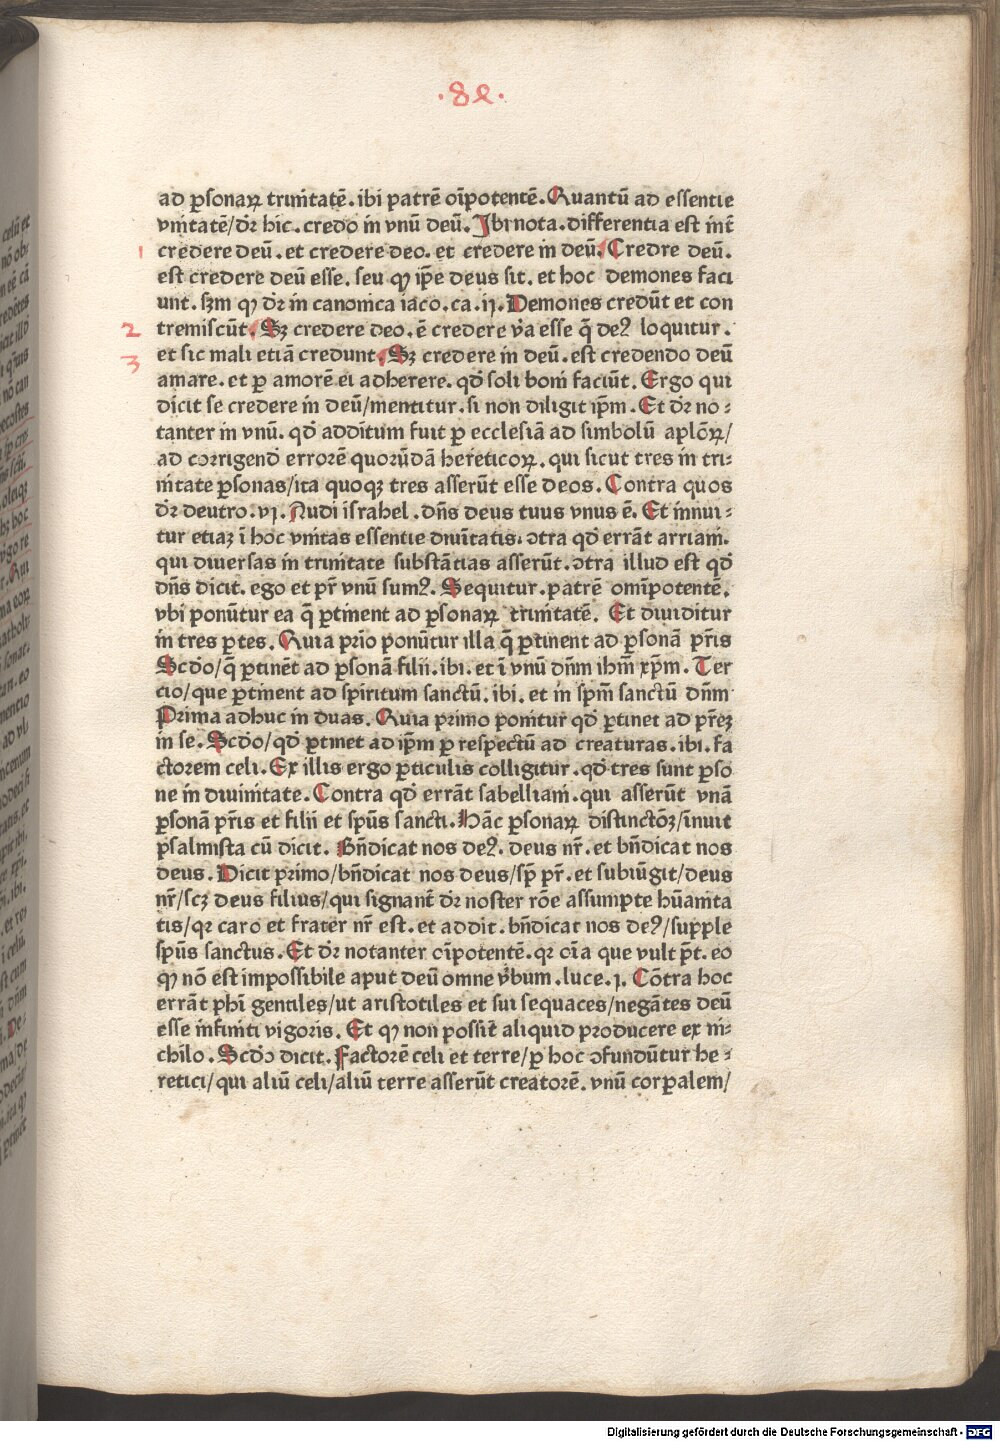 ·8e·
ad ꝑſonaꝝ trinitatē. ibi patrē oīpotentē. Quantū ad eſſentie
vnitatē/dr̄ hic. credo in vnū deū. Ibi nota. differentia eſt int̄
1 credere deū. et credere deo. et credere in deū. Credre deū.
eſt credere deū eſſe. ſeu ꝙ ip̄e deus ſit. et hoc demones faci
unt. ſꝫm ꝙ dr̄ in canonica iaco. ca. ij. Demones credūt et con
2 tremiſcūt. Sꝫ credere deo. ē credere v̄a eſſe q̄ deꝰ loquitur.
3 et ſic mali etiā credunt. Sꝫ credere in deū. eſt credendo deū
amare. et ꝑ amorē ei adherere. qd̄ ſoli boni faciūt. Ergo qui
dicit ſe credere in deū/mentitur. ſi non diligit ip̄m. Et dr̄ no⸗
tanter in vnū. qd̄ additum fuit ꝑ eccleſiā ad ſimbolū aplōꝝ/
ad corrigend̄ errorē quorūdā hereticoꝝ. qui ſicut tres in tri⸗
nitate ꝑſonas/ita quoqꝫ tres aſſerūt eſſe deos. Contra quos
dr̄ deutro. vj. Audi iſrahel. dn̄s deus tuus vnus ē. Et innui⸗
tur etiaꝫ ī hoc vnitas eſſentie diuītatis. ↄtra qd̄ errāt arriani.
qui diuerſas in trinitate ſubſtātias aſſerūt. ↄtra illud eſt qd̄
dn̄s dicit. ego et pr̄ vnū ſumꝰ. Sequitur. patrē omīpotentē.
vbi ponūtur ea q̄ ꝑtinent ad ꝑſonaꝝ trinitatē. Et diuiditur
in tres ꝑtes. Quia prīo ponūtur illa q̄ ꝑtinent ad ꝑſonā pr̄is
Scd̄o/q̄ ꝑtinēt ad ꝑſonā filii. ibi. et ī vnū dn̄m ihm̄ xp̄m. Ter
cio/que ꝑtinent ad ſpiritum ſanctū. ibi. et in ſpm̄ ſanctū dn̄m
Prima adhuc in duas. Quia primo ponitur qd̄ ꝑtinet ad pr̄eꝫ
in ſe. Scd̄o/qd̄ ꝑtinet ad ip̄m ꝑ reſpectū ad creaturas. ibi. fa
ctorem celi. Ex illis ergo ꝑticulis colligitur. qd̄ tres ſunt ꝑſo
ne in diuinitate. Contra qd̄ errāt ſabelliani. qui aſſerūt vnā
ꝑſonā pr̄is et filii et ſpūs ſancti. Hāc ꝑſonaꝝ diſtinctōꝫ/inuit
pſalmiſta cū dicit. Bn̄dicat nos deꝰ. deus nr̄. et bn̄dicat nos
deus. Dicit primo/bn̄dicat nos deus/ſp̄ pr̄. et ſubiūgit/deus
nr̄/ſcꝫ deus filius/qui ſignant̄ dr̄ noſter rōe aſſumpte hūanita
tis/qꝛ caro et frater nr̄ eſt. et addit. bn̄dicat nos deꝰ/ſupple
ſpūs ſanctus. Et dr̄ notanter oīpotentē. qꝛ oīa que vult p̄t. eo
ꝙ nō eſt impoſſibile aput deū omne v̄bum. luce. j. Cōtra hoc
errāt ph̄i gentiles/ut ariſtotiles et ſui ſequaces/negātes deū
eſſe infiniti vigoris. Et ꝙ non poſſit̄ aliquid producere ex ni⸗
chilo. Scd̄o dicit. Factorē celi et terre/ꝑ hoc ↄfundūtur he⸗
retici/qui aliū celi/aliū terre aſſerūt creatorē. vnū corꝑalem/
Digitalisierung gefördert durch die Deutsche Forschungsgemeinschaft - DFG